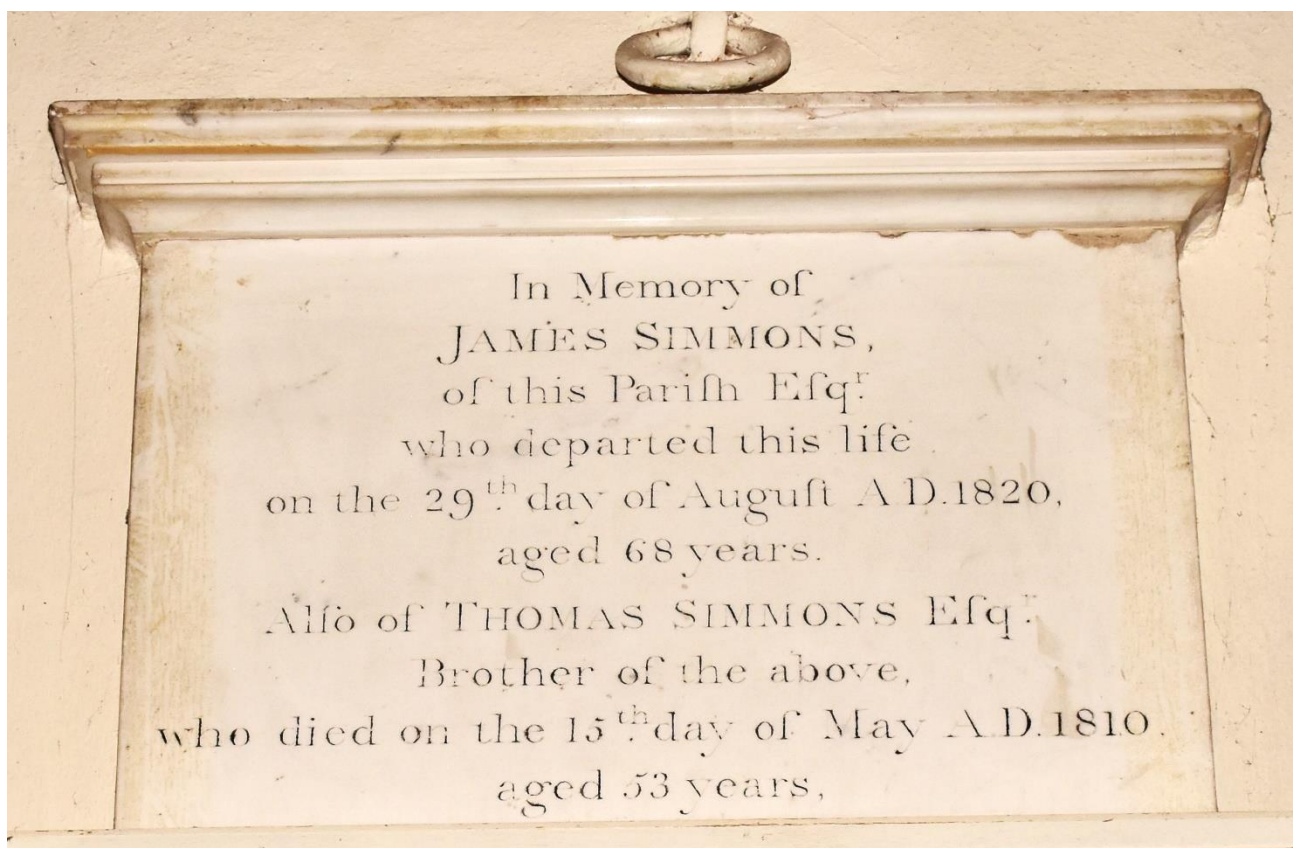 In Memory of
JAMES SIMMONS,
of this Pariſh Eſqr.
who departed this life
on the 29th. day of Auguſt A.D.1820,
aged 68 years.
Alſo of THOMAS SIMMONS Eſqr.
Brother of the above,
who died on the 15th. day of May A.D.1810.
aged 53 years,